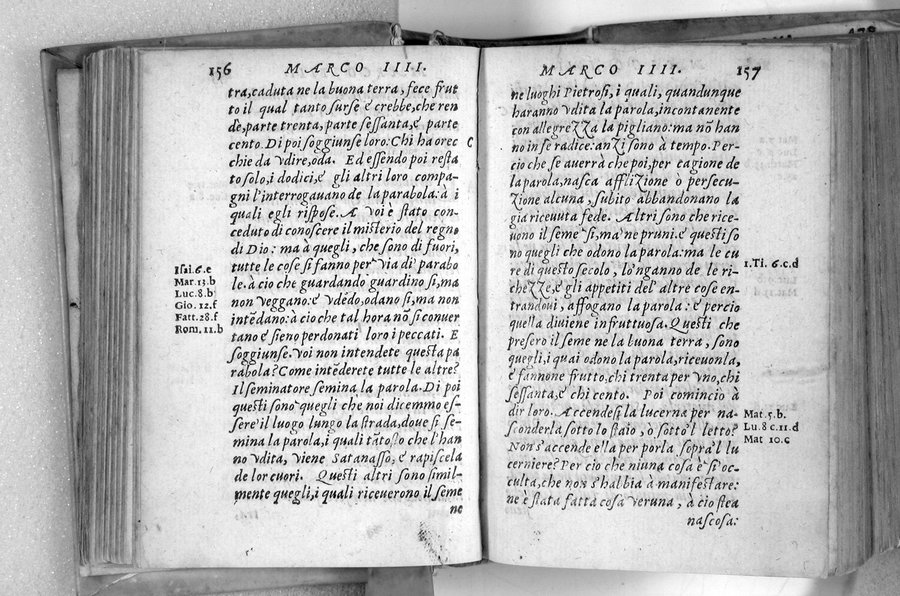 156
MARCO IIII.
tra, caduta ne la buona terra, fece frut
to il qual tanto surse é crebbe, che ren
de, parte trenta, parte sessanta, é parte
cento. Di poi soggiunse loro: Chi ha orec
chie da vdire, oda. Ed essendo poi resta
to solo, i dodici, é gli altri loro compa-
gni l'interrogauano de la parabola: à i
quali egli rispose. A voi è stato con-
ceduto di conoscere il misterio del regno
di Dio: ma à quegli, che sono di fuori,
tutte le cose si fanno per via di parabo
le. à cio che guardando guardino si, ma
non veggano: é vdẽdo, odano si, ma non
intẽdano: à cio che tal hora nõ si conuer
tano é sieno perdonati loro i peccati. E
soggiunse. Voi non intendete questa pa
rabola? Come intẽderete tutte le altre?
Il seminatore semina la parola. Di poi
questi sono quegli che noi dicemmo es-
sere il luogo lungo la strada, doue si se-
mina la parola, i quali tãtosto che l'han
no vdita, viene Satanasso, é rapiscela
de lor cuori. Questi altri sono simil-
mente quegli, i quali riceuerono il seme
ne
Isai. 6. e
Mat. 13. b
Luc. 8. b
Gio. 12. f
Fatt. 28. f
Rom. 11. b
C
MARCO IIII.
157
ne luoghi Pietrosi, i quali, quandunque
haranno vdita la parola, incontanente
con allegrezza la pigliano: ma nõ han
no in se radice: anzi sono à tempo. Per-
cio che se auerrà che poi, per cagione de
la parola, nasca afflizione ò persecu-
zione alcuna, subito abbandonano la
gia riceuuta fede. Altri sono che rice-
uono il seme si, ma ne pruni. é questi so
no quegli che odono la parola: ma le cu
re di questo secolo, lo'nganno de le ri-
chezze, é gli appetiti del'altre cose en-
trandoui, affogano la parola: é percio
quella diuiene infruttuosa. Questi che
presero il seme ne la buona terra, sono
quegli, i quai odono la parola, riceuonla,
é fannone frutto, chi trenta per vno, chi
sessanta, é chi cento. Poi comincio à
dir loro. Accendesi la lucerna per na-
sconderla sotto lo staio, ò sotto'l letto?
Non s'accende ella per porla sopra'l lu
cerniere? Per cio che niuna cosa è si oc-
culta, che non s'habbia à manifestare:
ne è stata fatta cosa veruna, à cio stea
nascosa:
1. Ti. 6. c. d
Mat. 5. b.
Lu. 8 c. 11. d
Mat 10. c